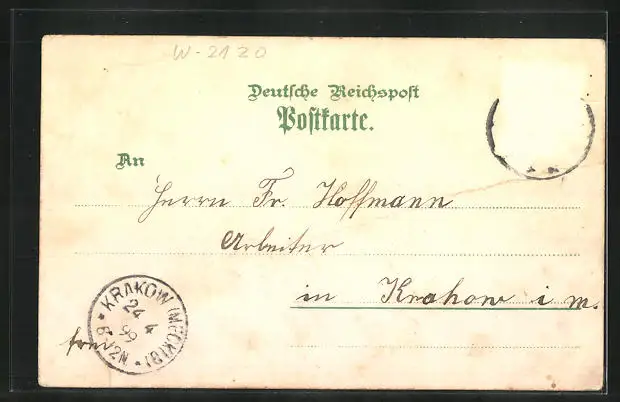 W-2120
Deutsche Reichspost
Postkarte.
An
Herrn Fr. Hoffmann
Arbeiter
in Krakow i M.
KRAKOW (MECKLB)
24 4
99
6-7 2N
frei